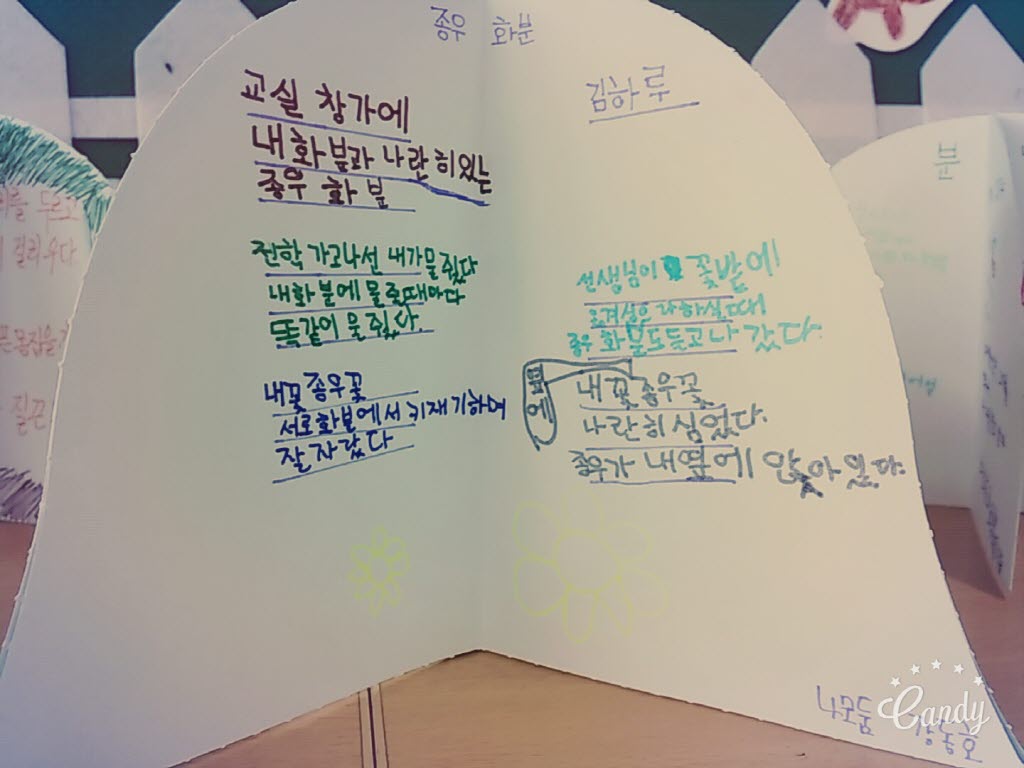 종우 화분
김하루
교실 창가에
내 화분과 나란히 있는
종우 화분
전학 가고 나선 내가 물 줬다
내 화분에 물 줄 때마다
똑같이 물 줬다.
내 꽃 종우 꽃
서로 화분에서 키재기하며
잘 자랐다
선생님이 꽃밭에
옮겨 심으라 하실 때
종우 화분도 들고 나갔다.
내 꽃 종우 꽃
나란히 심었다.
종우가 내 옆에 앉아 있다.
나모둠
분
Candy